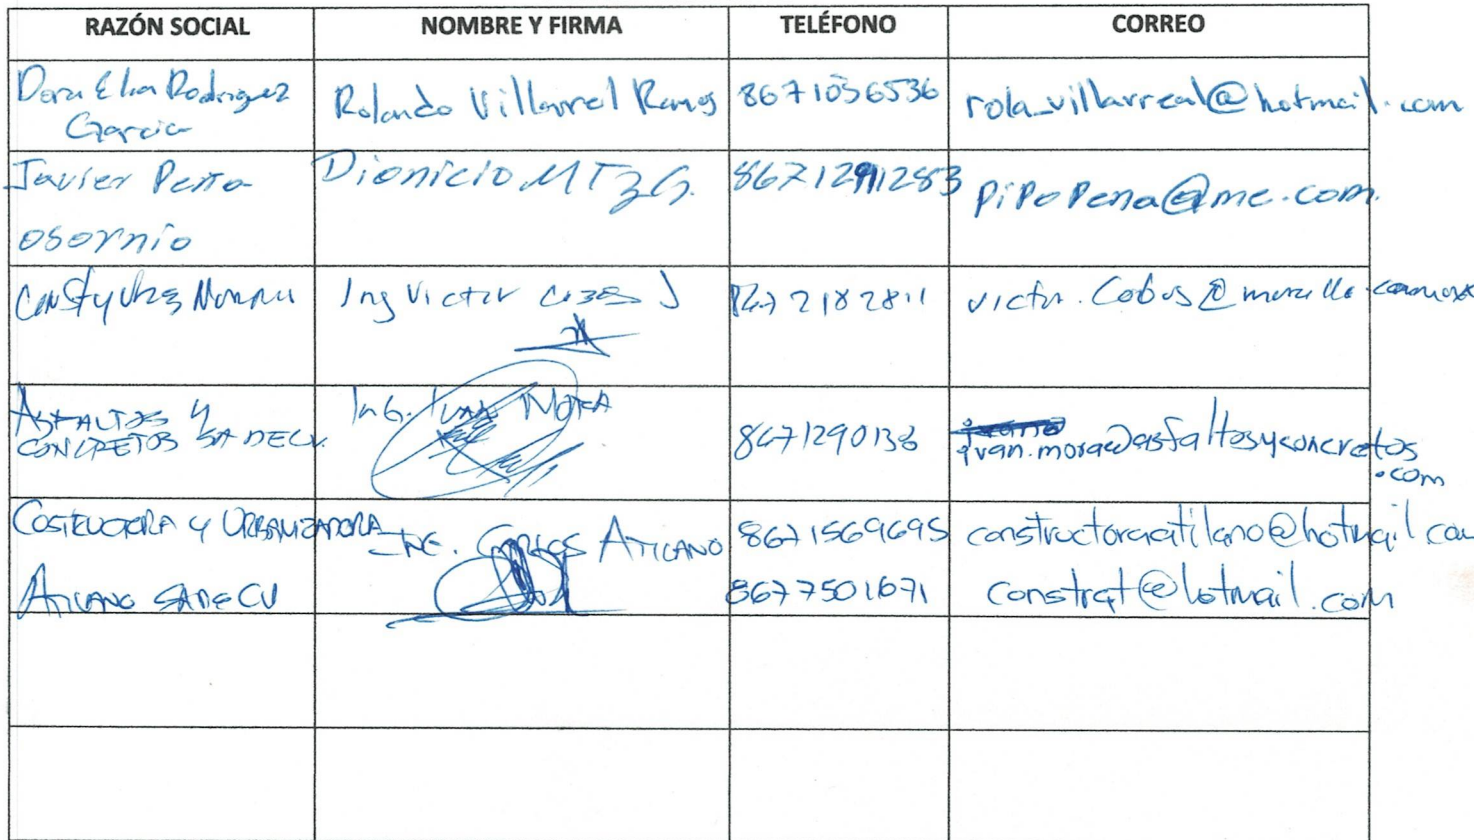 RAZÓN SOCIAL NOMBRE Y FIRMA TELÉFONO CORREO
Dora Elia Rodriguez
Garcia
Rolando Villarreal Ramos 8671056536 rola_villarreal@hotmail.com
Javier Peña
osornio
Dionicio MTZ G. pipopena@me.com.
Ing Victor Cobos J 867 2182811 victor.Cobos@
ASFALTOS Y
CONCRETOS SA DE CV.
Ing. Ivan MORA
8671290138
ivan.mora@asfaltosyconcretos
.com
COSTRUCTORA Y URBANIZADORA
ATILANO SA DE CV
ING. CARLOS ATILANO
8671569695 constructoraatilano@hotmail.com
8677501671 constrat@hotmail.com